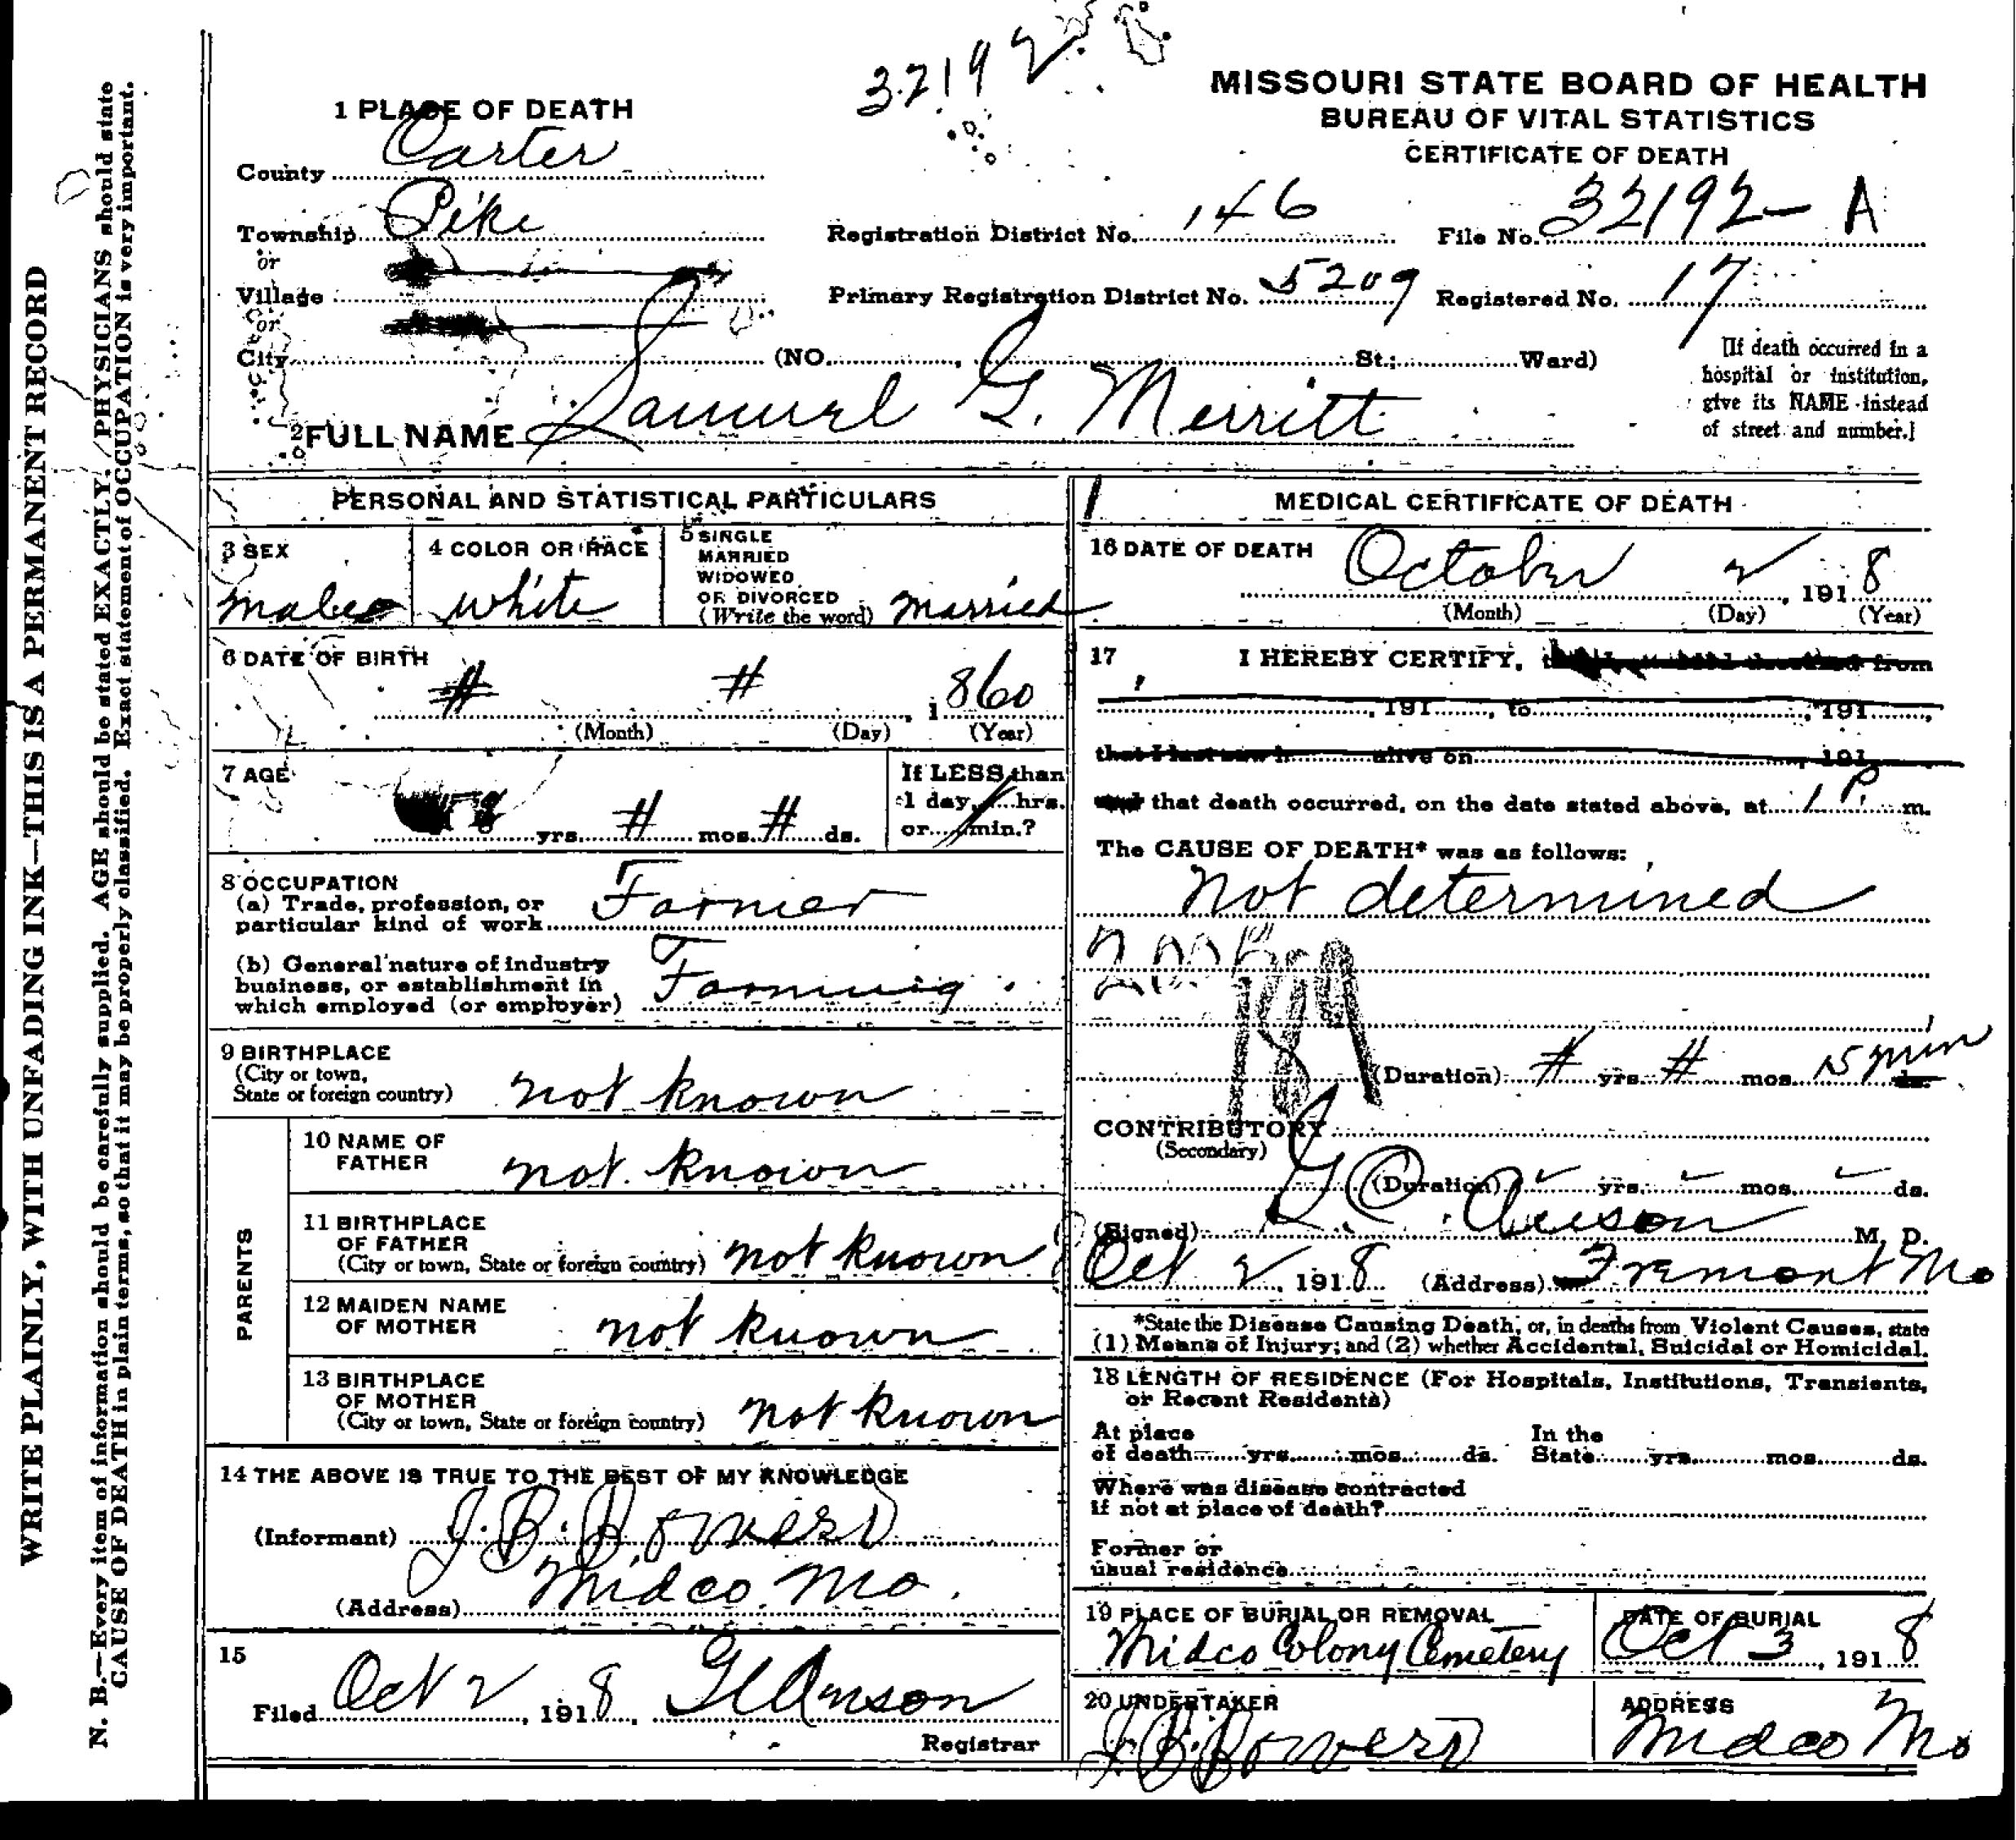 32192
MISSOURI STATE BOARD OF HEALTH
BUREAU OF VITAL STATISTICS
CERTIFICATE OF DEATH
1 PLACE OF DEATH
County Carter
Township Pike
or
Village
or
City (NO. , St.; Ward)
Registration District No. 146 File No. 32192-A
Primary Registration District No. 5209 Registered No. 17
[If death occurred in a
hospital or institution,
give its NAME instead
of street and number.]
2 FULL NAME Samuel G. Merritt
PERSONAL AND STATISTICAL PARTICULARS
3 SEX
male
4 COLOR OR RACE
white
5 SINGLE
MARRIED
WIDOWED
OR DIVORCED
(Write the word) married
6 DATE OF BIRTH
# # , 1860
(Month) (Day) (Year)
7 AGE
yrs. # mos. # ds.
If LESS than
1 day, hrs.
or min.?
8 OCCUPATION
(a) Trade, profession, or
particular kind of work Farmer
(b) General nature of industry
business, or establishment in
which employed (or employer) Farming
9 BIRTHPLACE
(City or town,
State or foreign country) not known
PARENTS
10 NAME OF
FATHER not known
11 BIRTHPLACE
OF FATHER
(City or town, State or foreign country) not known
12 MAIDEN NAME
OF MOTHER not known
13 BIRTHPLACE
OF MOTHER
(City or town, State or foreign country) not known
14 THE ABOVE IS TRUE TO THE BEST OF MY KNOWLEDGE
(Informant) J. B. Bowers
(Address) Midco Mo.
15
Filed Oct 2, 1918, Registrar
MEDICAL CERTIFICATE OF DEATH
16 DATE OF DEATH October 2, 1918
(Month) (Day) (Year)
17 I HEREBY CERTIFY, from
, 191 , to , 191 ,
that I last saw h alive on , 191
and that death occurred, on the date stated above, at 1 P. m.
The CAUSE OF DEATH* was as follows:
not determined
(Duration) # yrs. # mos. 15 min ds.
CONTRIBUTORY
(Secondary)
(Duration) yrs. mos. ds.
(Signed) M. D.
Oct 2, 1918 (Address) Fremont Mo
*State the Disease Causing Death; or, in deaths from Violent Causes, state
(1) Means of Injury; and (2) whether Accidental, Suicidal or Homicidal.
18 LENGTH OF RESIDENCE (For Hospitals, Institutions, Transients,
or Recent Residents)
At place
of death yrs. mos. ds.
In the
State yrs. mos. ds.
Where was disease contracted
if not at place of death?
Former or
usual residence
19 PLACE OF BURIAL OR REMOVAL
Midco Colony Cemetery
DATE OF BURIAL
Oct 3, 1918
20 UNDERTAKER
J. B. Bowers
ADDRESS
Midco Mo
WRITE PLAINLY, WITH UNFADING INK—THIS IS A PERMANENT RECORD
N. B.—Every item of information should be carefully supplied. AGE should be stated EXACTLY. PHYSICIANS should state
CAUSE OF DEATH in plain terms, so that it may be properly classified. Exact statement of OCCUPATION is very important.